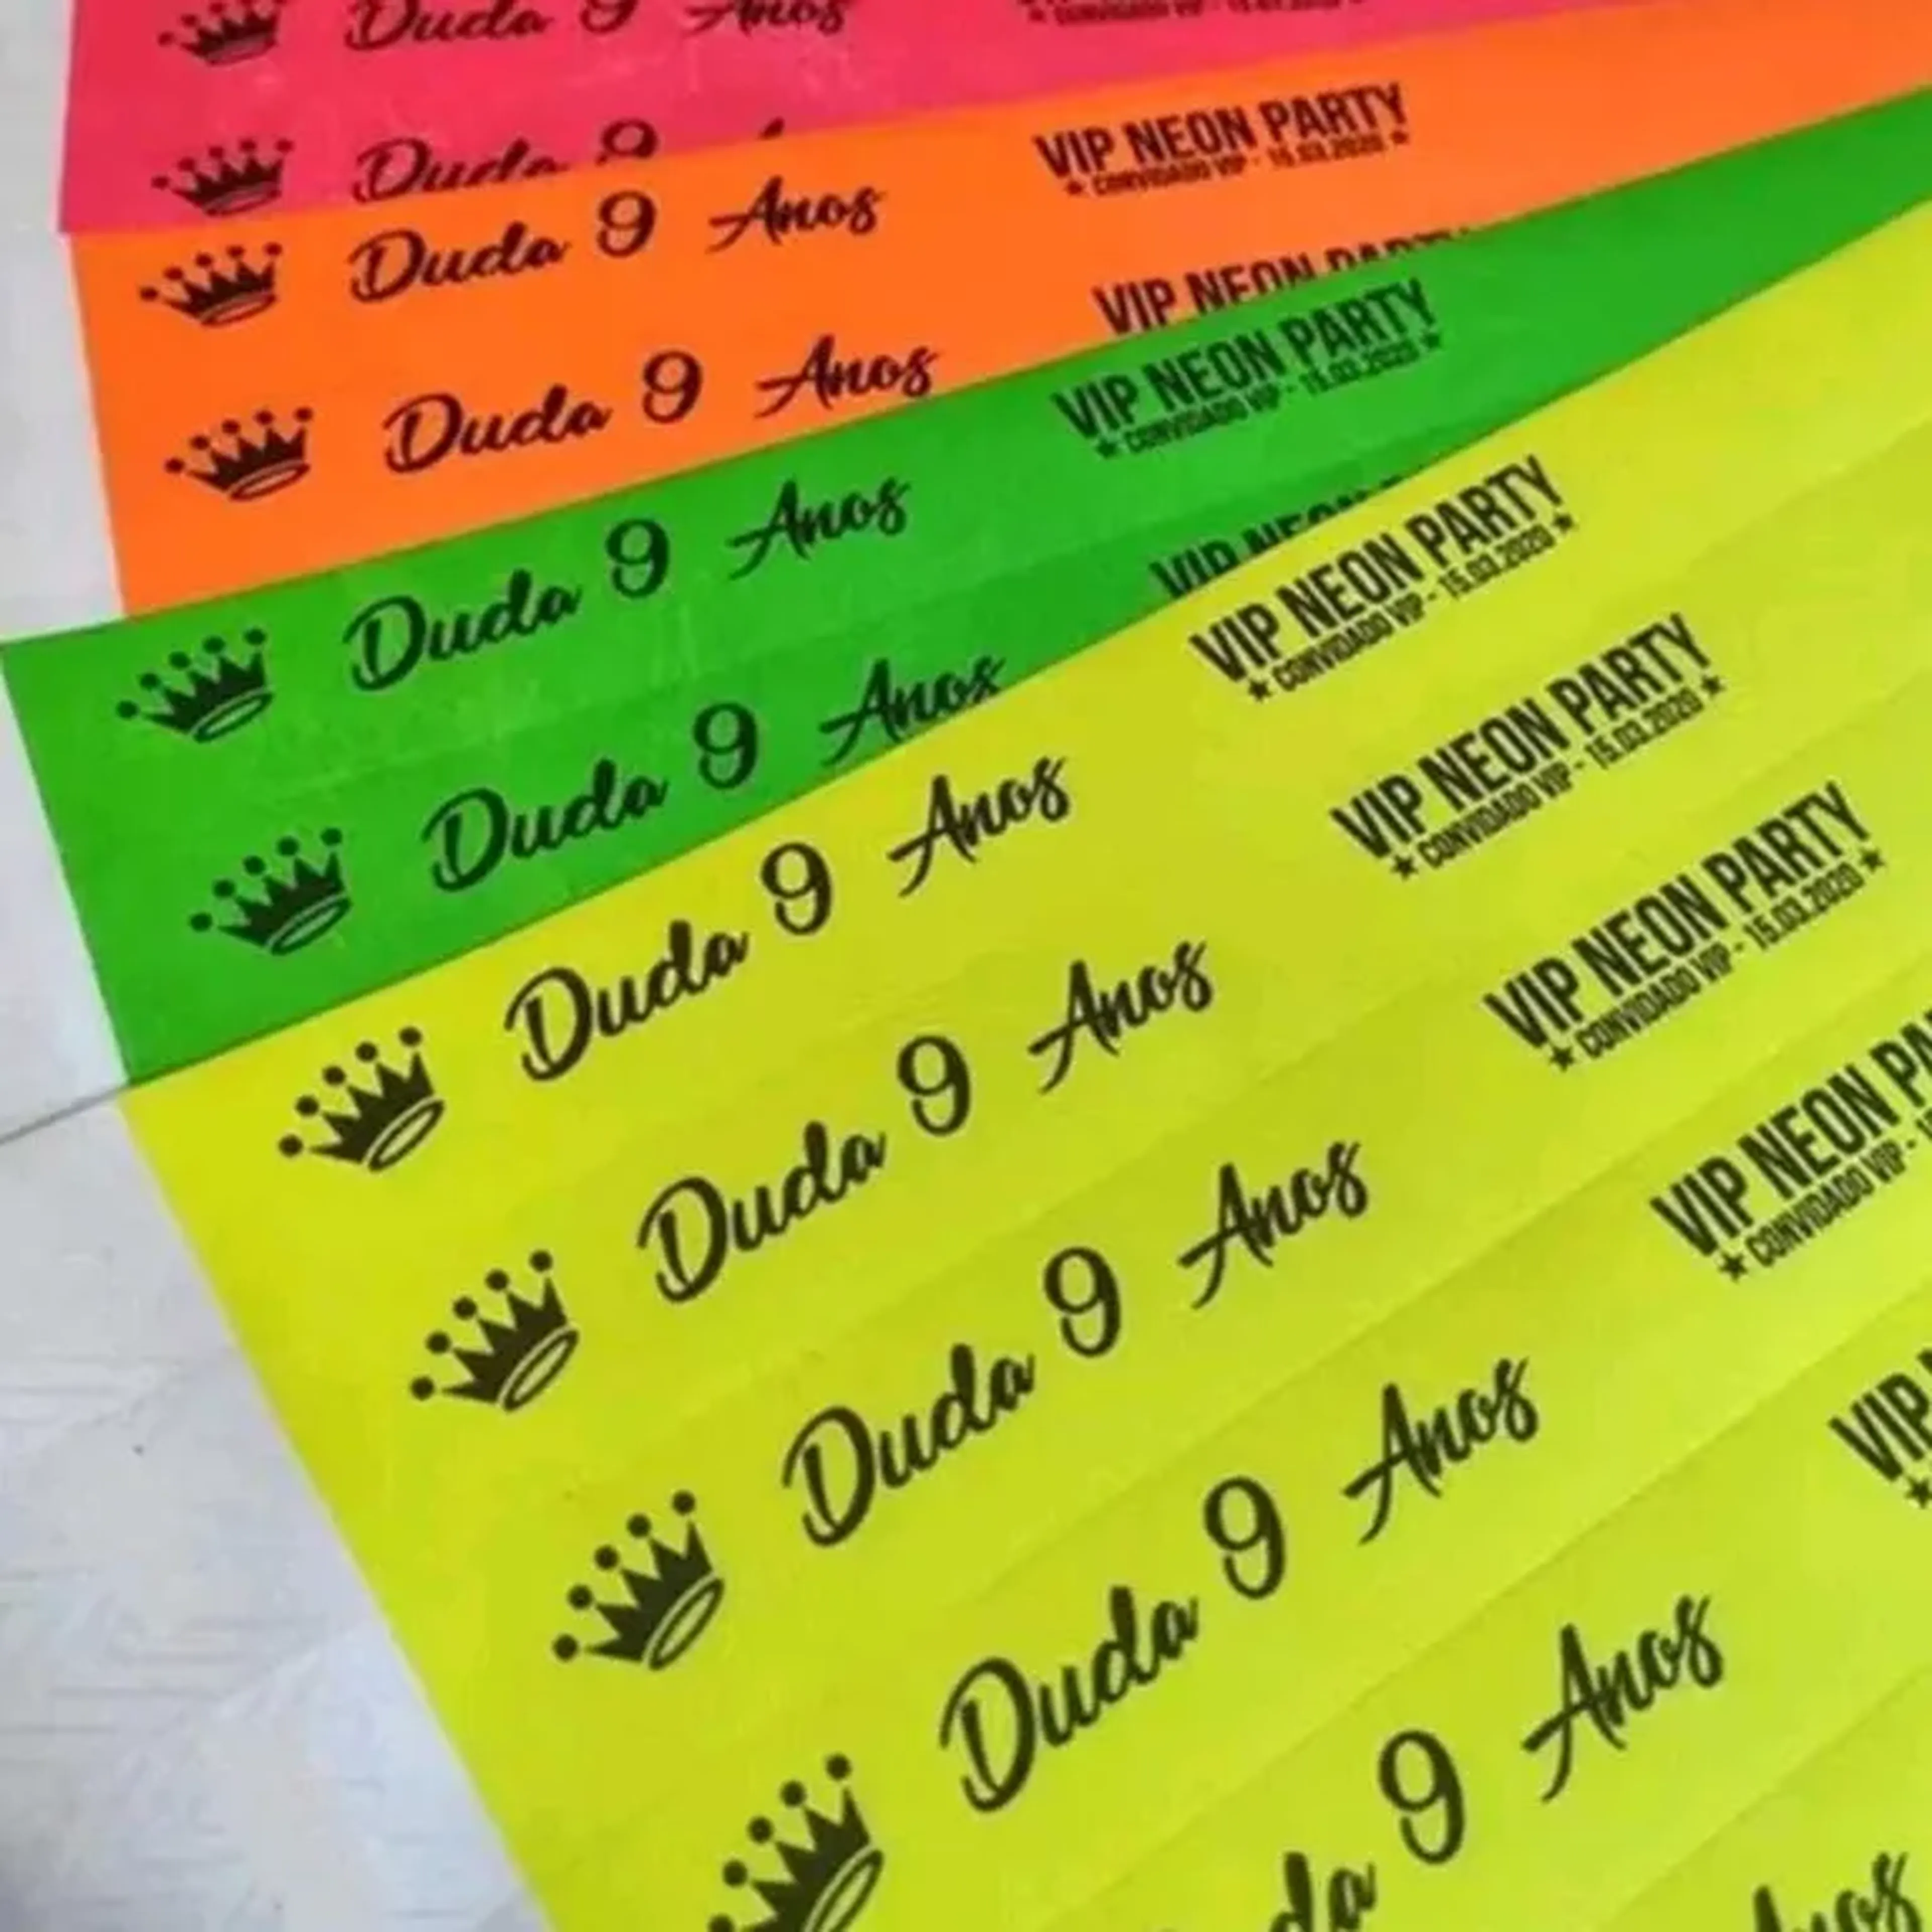 Duda 9 Anos
★ CONVIDADO VIP - 15.03.2020 ★
Duda 9
Duda 9 Anos
VIP NEON PARTY
★ CONVIDADO VIP - 15.03.2020 ★
Duda 9 Anos
VIP NEON PARTY
Duda 9 Anos
VIP NEON PARTY
★ CONVIDADO VIP - 15.03.2020 ★
Duda 9 Anos
VIP NEON
Duda 9 Anos
VIP NEON PARTY
★ CONVIDADO VIP - 15.03.2020 ★
Duda 9 Anos
VIP NEON PARTY
★ CONVIDADO VIP - 15.03.2020 ★
Duda 9 Anos
VIP NEON PARTY
★ CONVIDADO VIP - 15.03.2020 ★
Duda 9 Anos
VIP NEON PA
★ CONVIDADO VIP - 1
da 9 Anos
VIP
★
nos